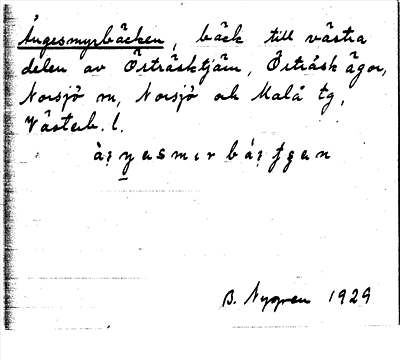 Ångesmyrbäcken, bäck till västra
delen av Örträsktjärn, Örträsk ägor,
Norsjö sn, Norsjö och Malå tg,
Västerb. l.
B. Nygren 1929